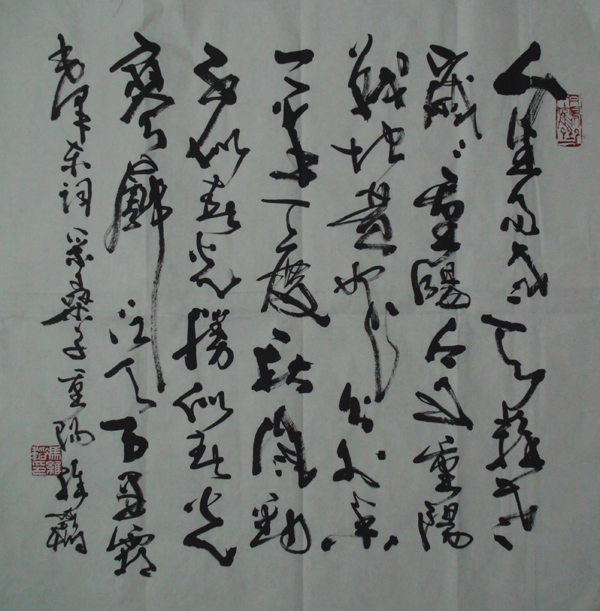 人生易老天難老
歲々重陽今又重陽
戰地黃花分外香
一年一度秋風勁
不似春光勝似春光
寥廓江天万里霜
毛澤東詞采桑子重陽